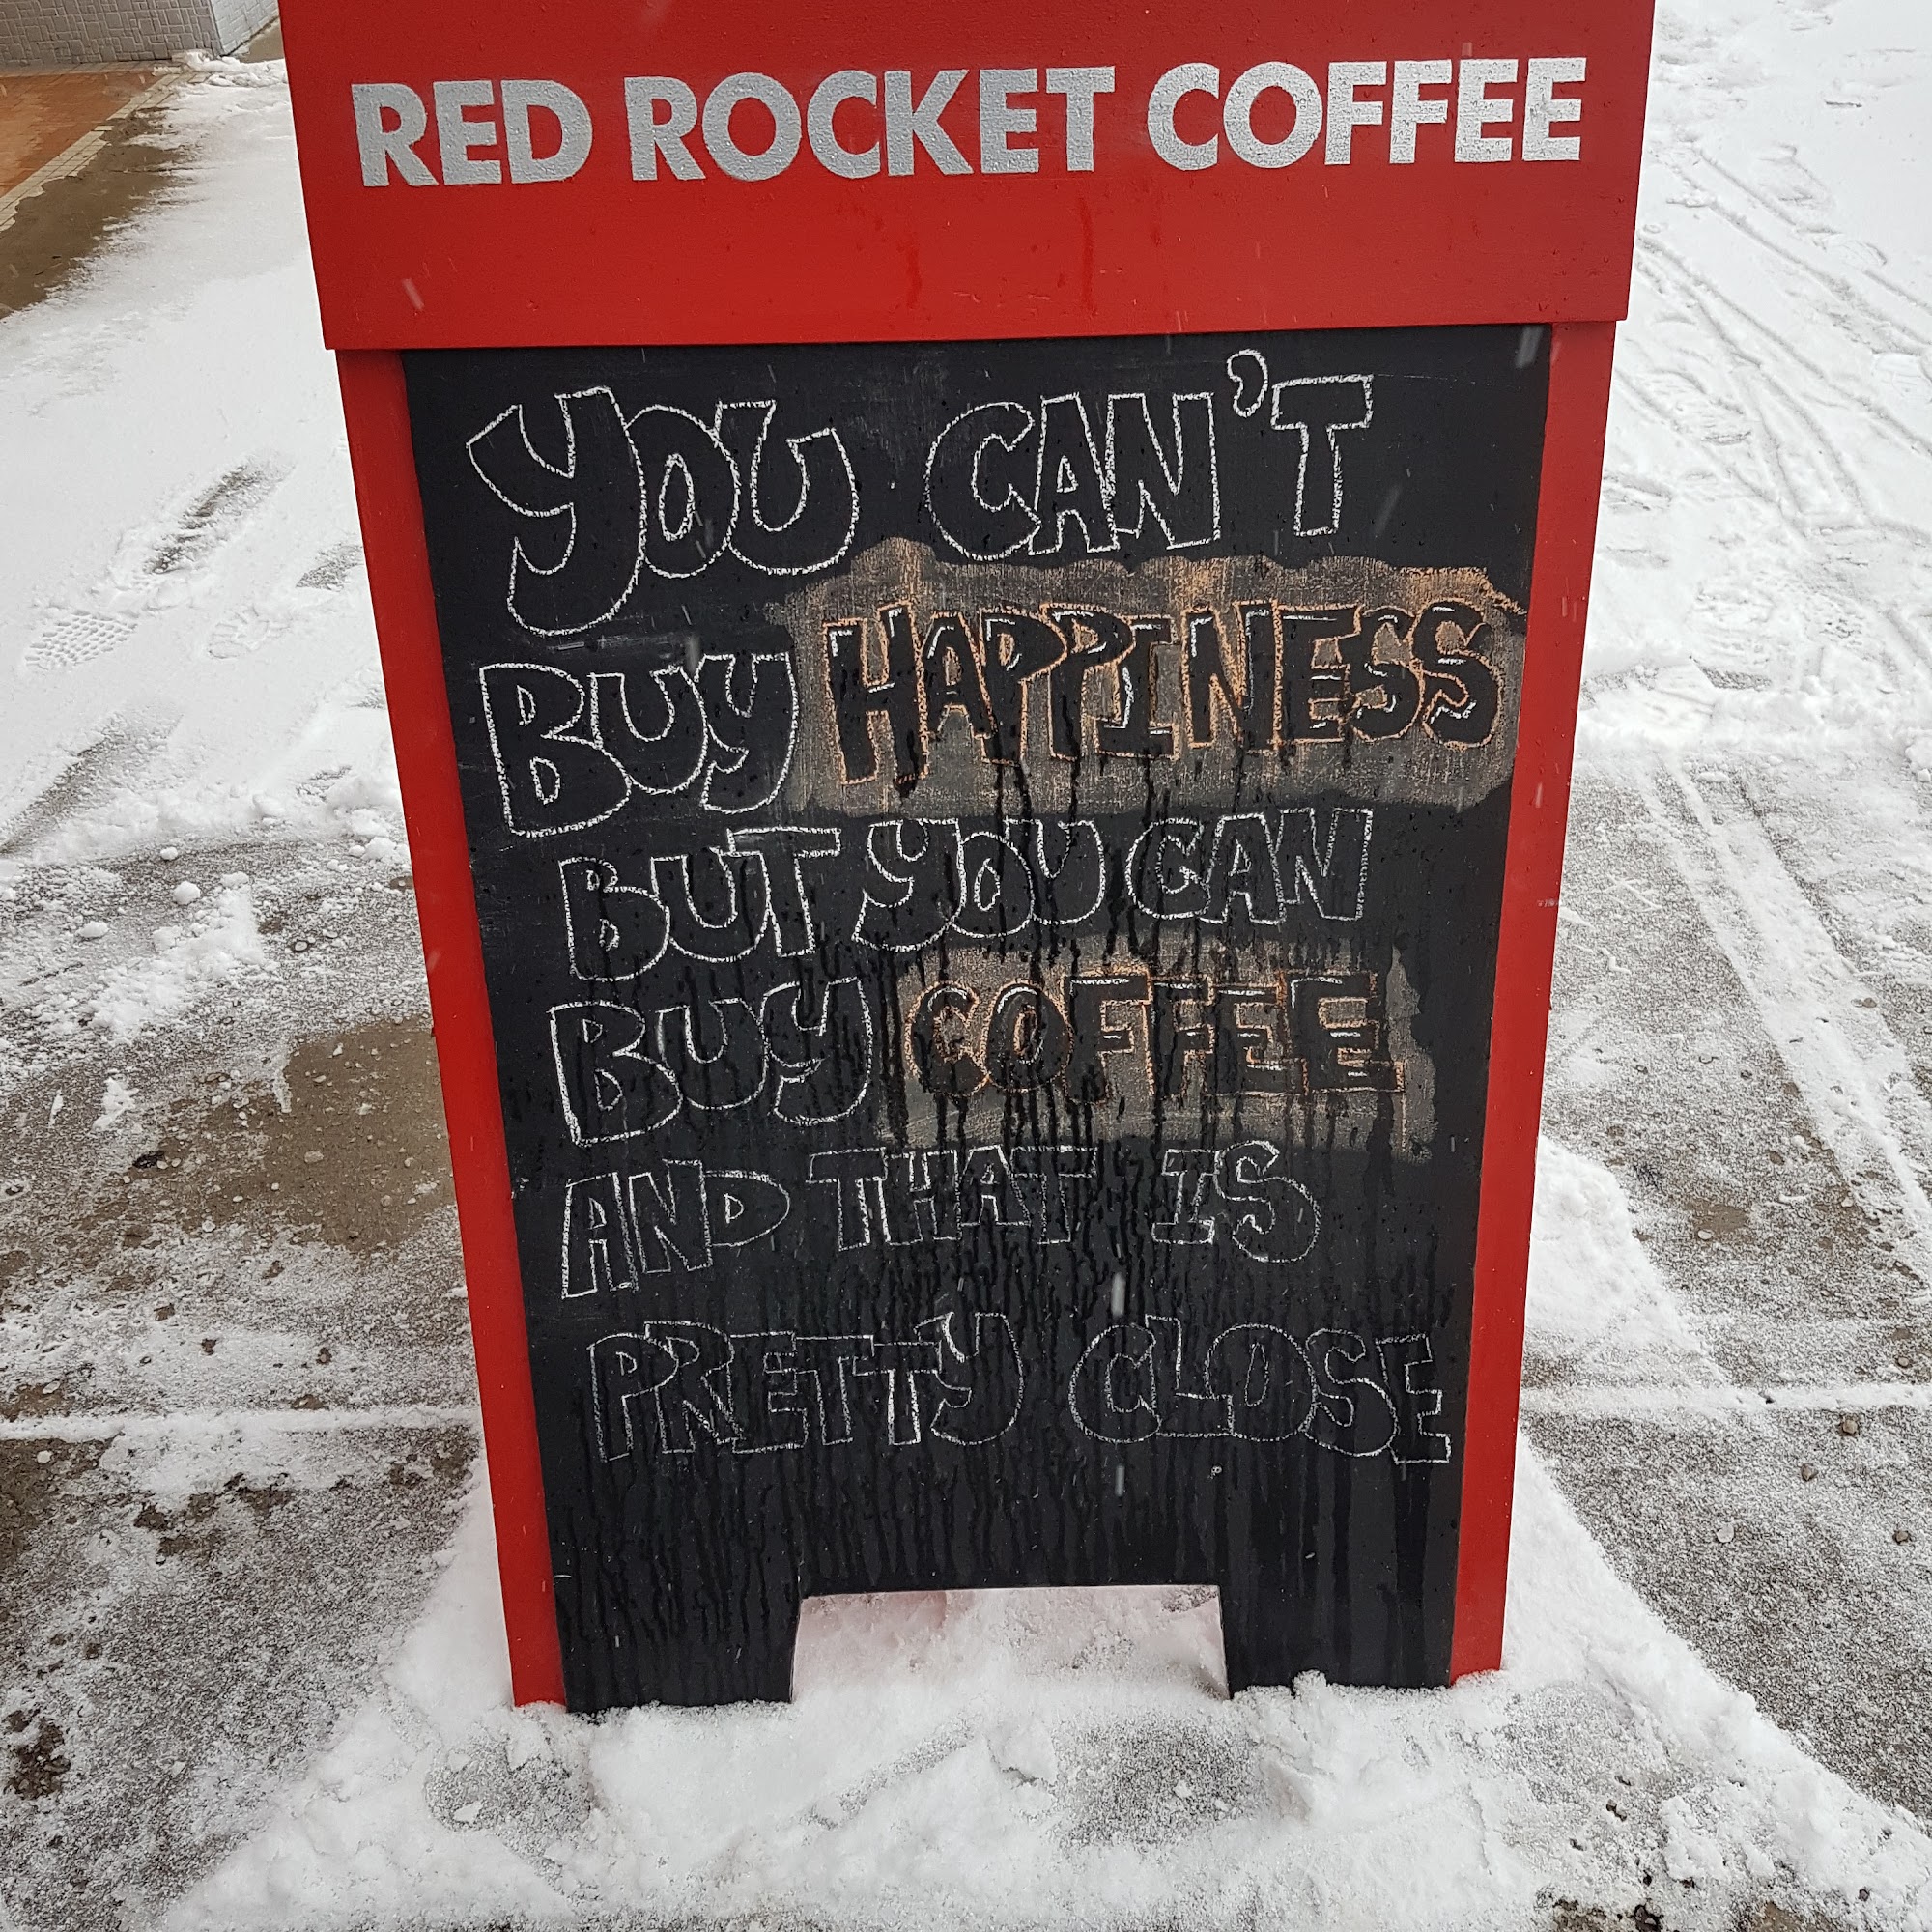 RED ROCKET COFFEE
YOU CAN'T
BUY HAPPINESS
BUT YOU CAN
BUY COFFEE
AND THAT IS
PRETTY CLOSE